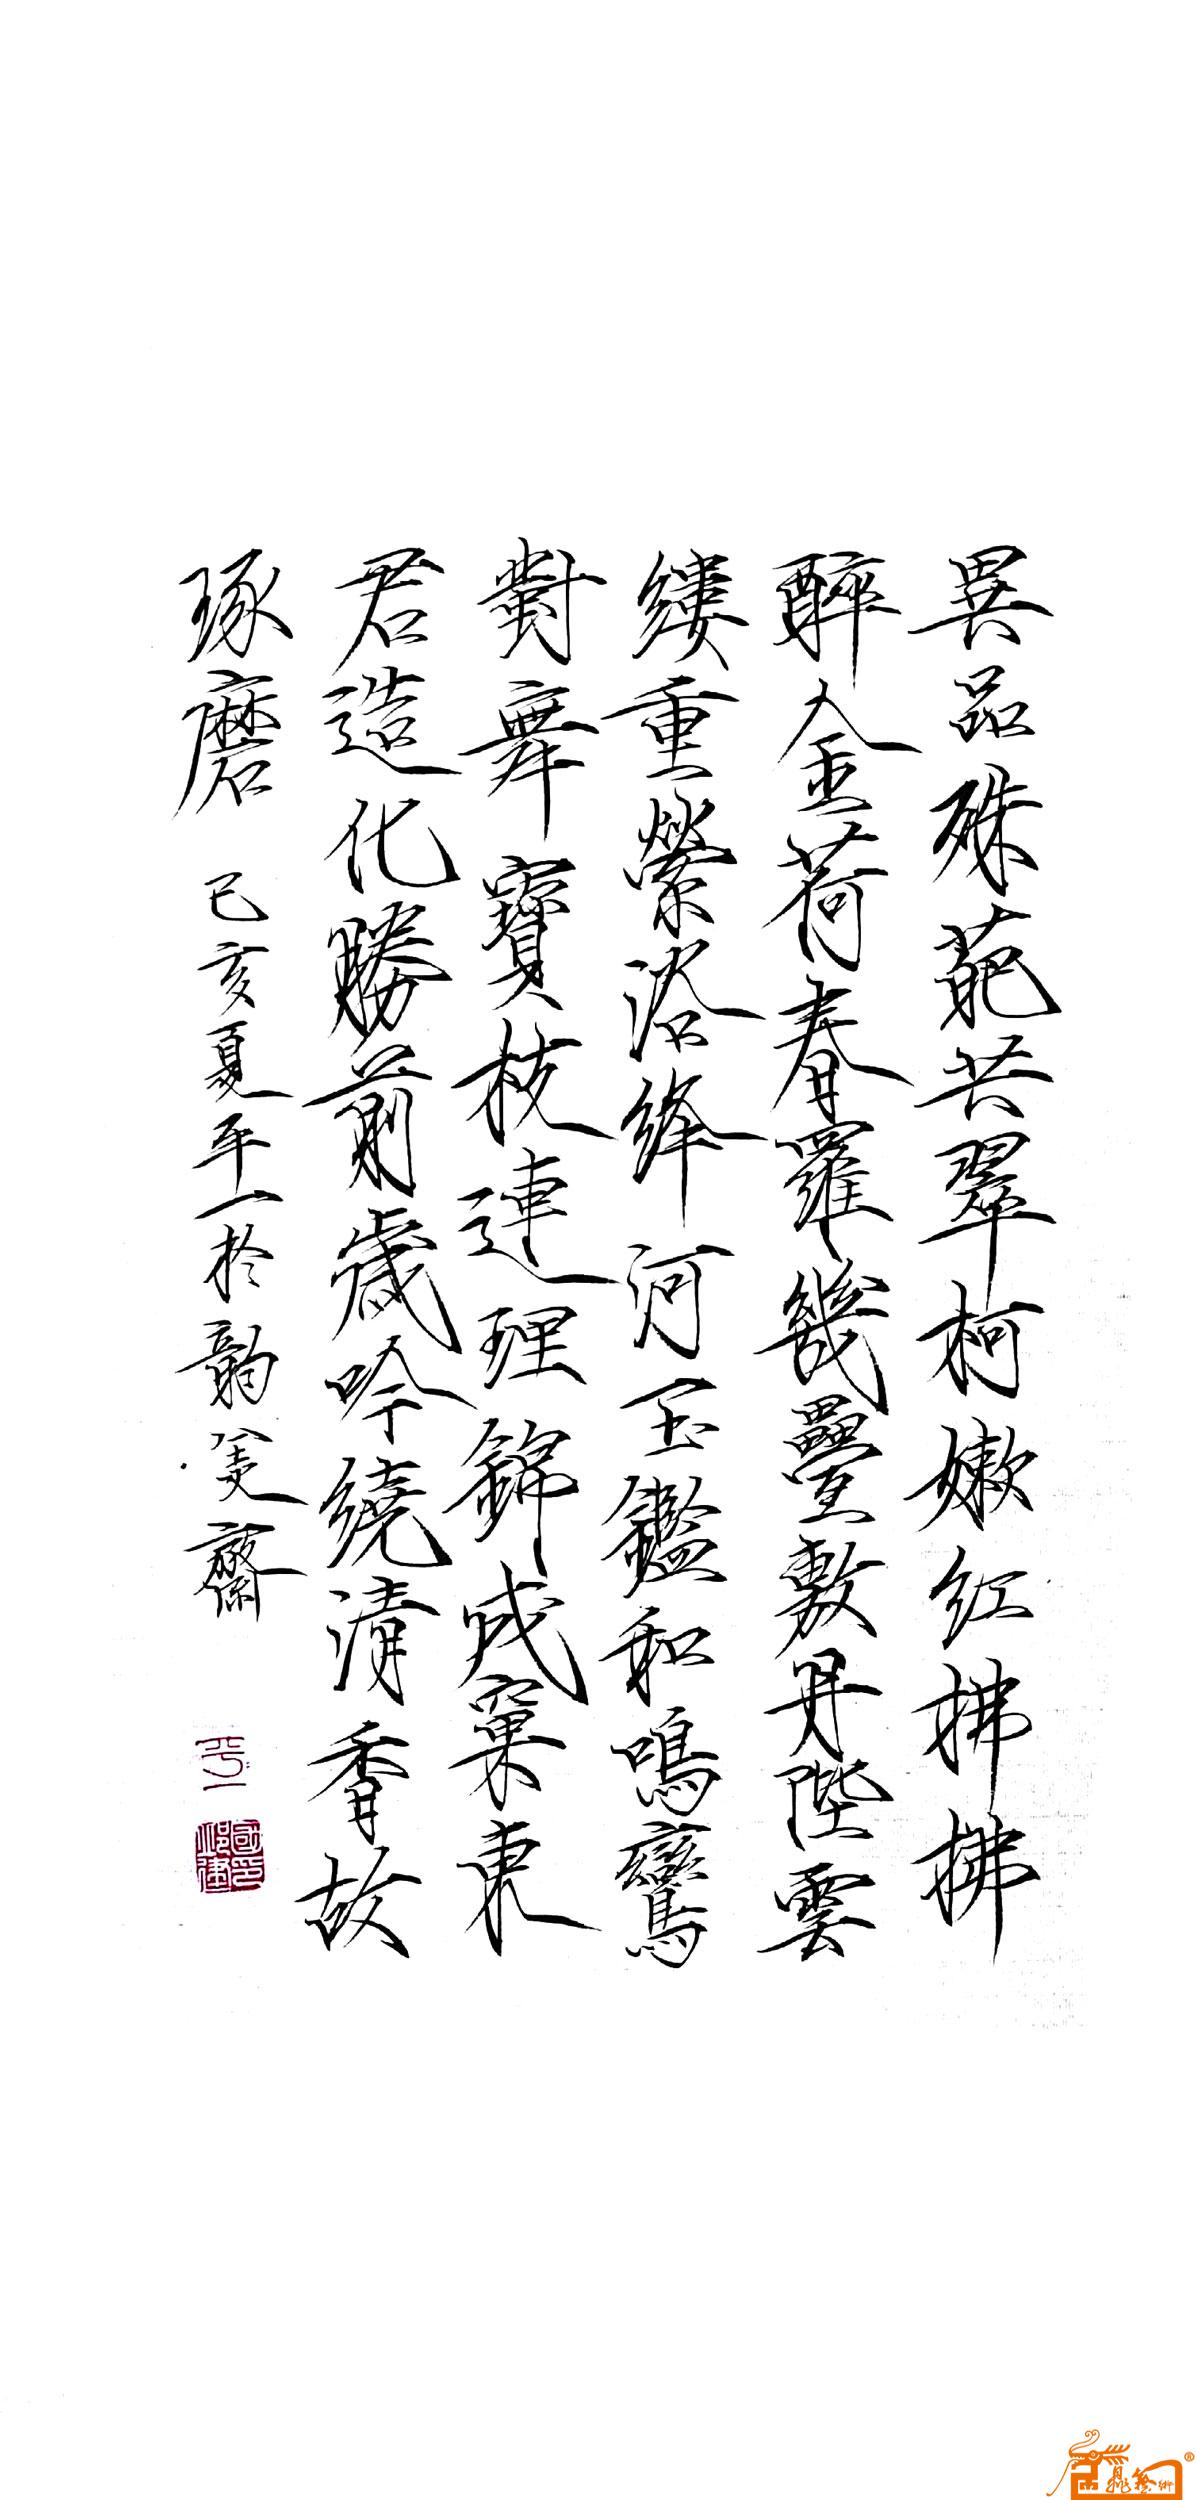 異品殊葩共翠柯嫩紅拂拂
醉金荷春羅幾疊敷丹陛雲
縷重縈浴絳河玉鑑和鳴鸞
對舞寶枝連理錦成窠東
君造化勝前歲吟繞清香故
琢磨 己亥夏平一於韵凌齋
平一